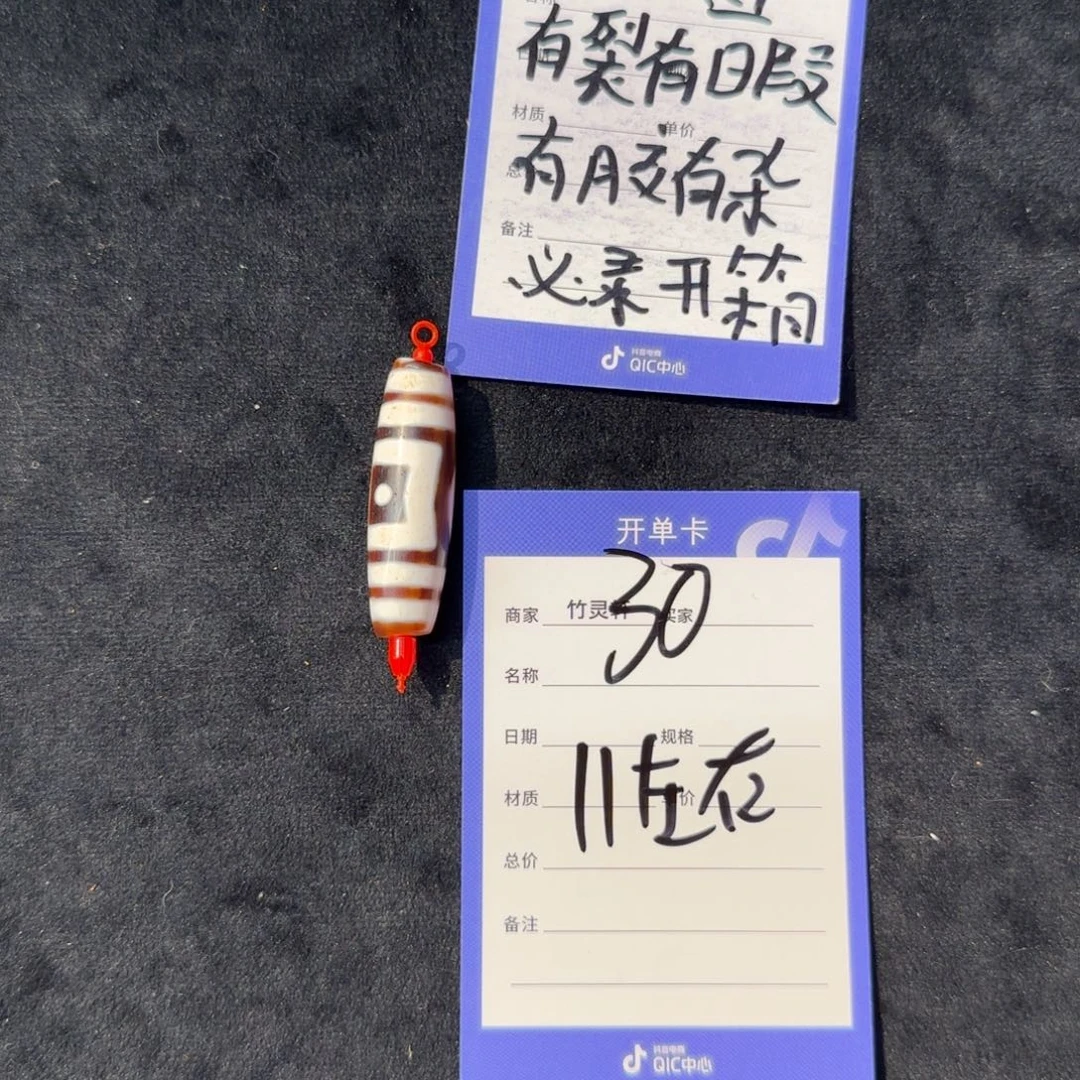 有裂有日暇
材质 单价
有胶有杀
备注
必录开箱
抖音电商
QIC中心
开单卡
商家 竹灵轩 买家
30
名称
日期 规格
11左右
材质 单价
总价
备注
抖音电商
QIC中心